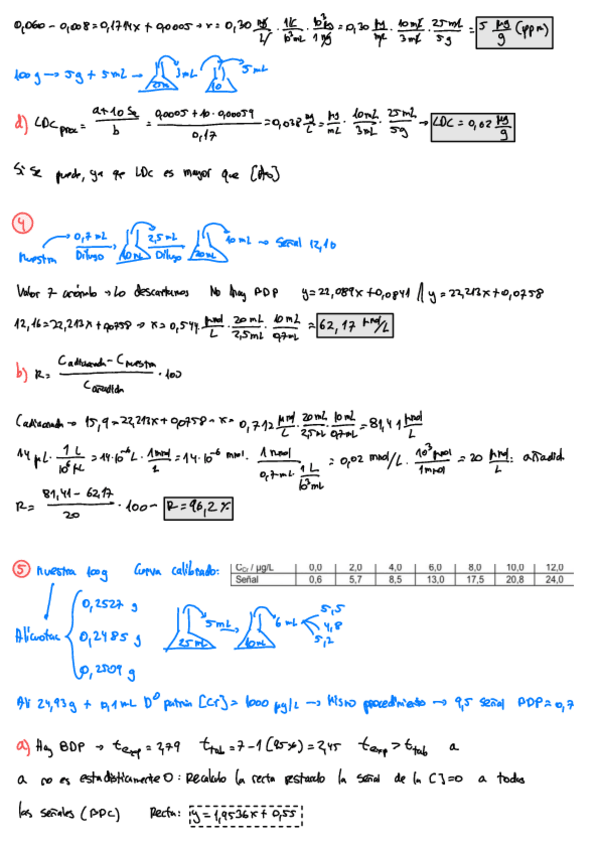 0,060 - 0,008 = 0,1714x + 0,0005 → x = 0,30 mg/L · 1L/10³mL · 10³µg/1mg = 0,30 µg/mL · 10mL/3mL · 25mL/5g = 5 µg/g (ppm)
100g → 5g + 5mL → 25mL 3mL 10 5mL
d) LDC proc = a+10 Sa/b = 0,0005 + 10 · 0,00059/0,17 = 0,038 mg/L = µg/mL · 10mL/3mL · 25mL/5g → LDC = 0,62 µg/g
Si se puede, ya que LDC es mayor que
4
Muestra 0,7 mL Diluyo 10mL 2,5mL Diluyo 20mL 10mL → Señal 12,16
Valor 7 anómalo → Lo descartamos No hay BDP y = 22,089x + 0,0841 // y = 22,213x + 0,0758
12,16 = 22,213x + 0,0758 → x = 0,544 µmol/L · 20mL/2,5mL · 10mL/0,7mL = 62,17 µmol/L
b) R = C adicionada - C muestra/C añadida · 100
C adicionada → 15,9 = 22,213x + 0,0758 → x = 0,712 µmol/L · 20mL/2,5mL · 10mL/0,7mL = 81,41 µmol/L
14 µL · 1L/10⁶µL = 14·10⁻⁶L · 1mmol/L = 14·10⁻⁶ mmol · 1mmol/0,7mL · 1L/10³mL = 0,02 mmol/L · 10³µmol/1mmol = 20 µmol/L añadida
R = 81,41 - 62,17/20 · 100 → R = 96,2%
5 Muestra 100g Curva calibrado: C Cr / µg/L 0,0 2,0 4,0 6,0 8,0 10,0 12,0
Señal 0,6 5,7 8,5 13,0 17,5 20,8 24,0
Alícuotas 0,2527 g
0,2485 g
0,2509 g
25mL 5mL 10mL 6mL 5,5 4,8 5,2
24,93g + 0,1mL Dº patrón [Cr] = 1000 µg/L → Mismo procedimiento → 9,5 señal BDP = 0,7
a) Hay BDP → t exp = 2,79 t tab = 7 - 1 (95%) = 2,45 t exp > t tab a
a no es estadísticamente 0: Recalculo la recta restando la señal de la C]=0 a todas
las señales (BDC) Recta: y = 1,9536x + 0,55